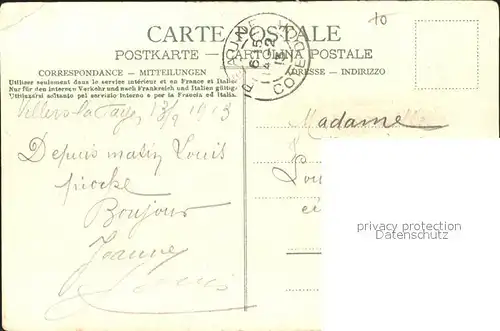 10
CARTE POSTALE
POSTKARTE — CARTOLINA POSTALE
CORRESPONDANCE - MITTEILUNGEN
ADRESSE - INDIRIZZO
Utilisez seulement dans le service intérieur et en France et Italie.
Nur für den internen Verkehr und nach Frankreich und Italien gültig.
Utilizzarsi soltanto pel servizio interno e per la Francia ed Italia.
13/9 1913
Depuis matin Louis
pioche
Bonjour
Jeanne
Louis
Madame
privacy protection
Datenschutz